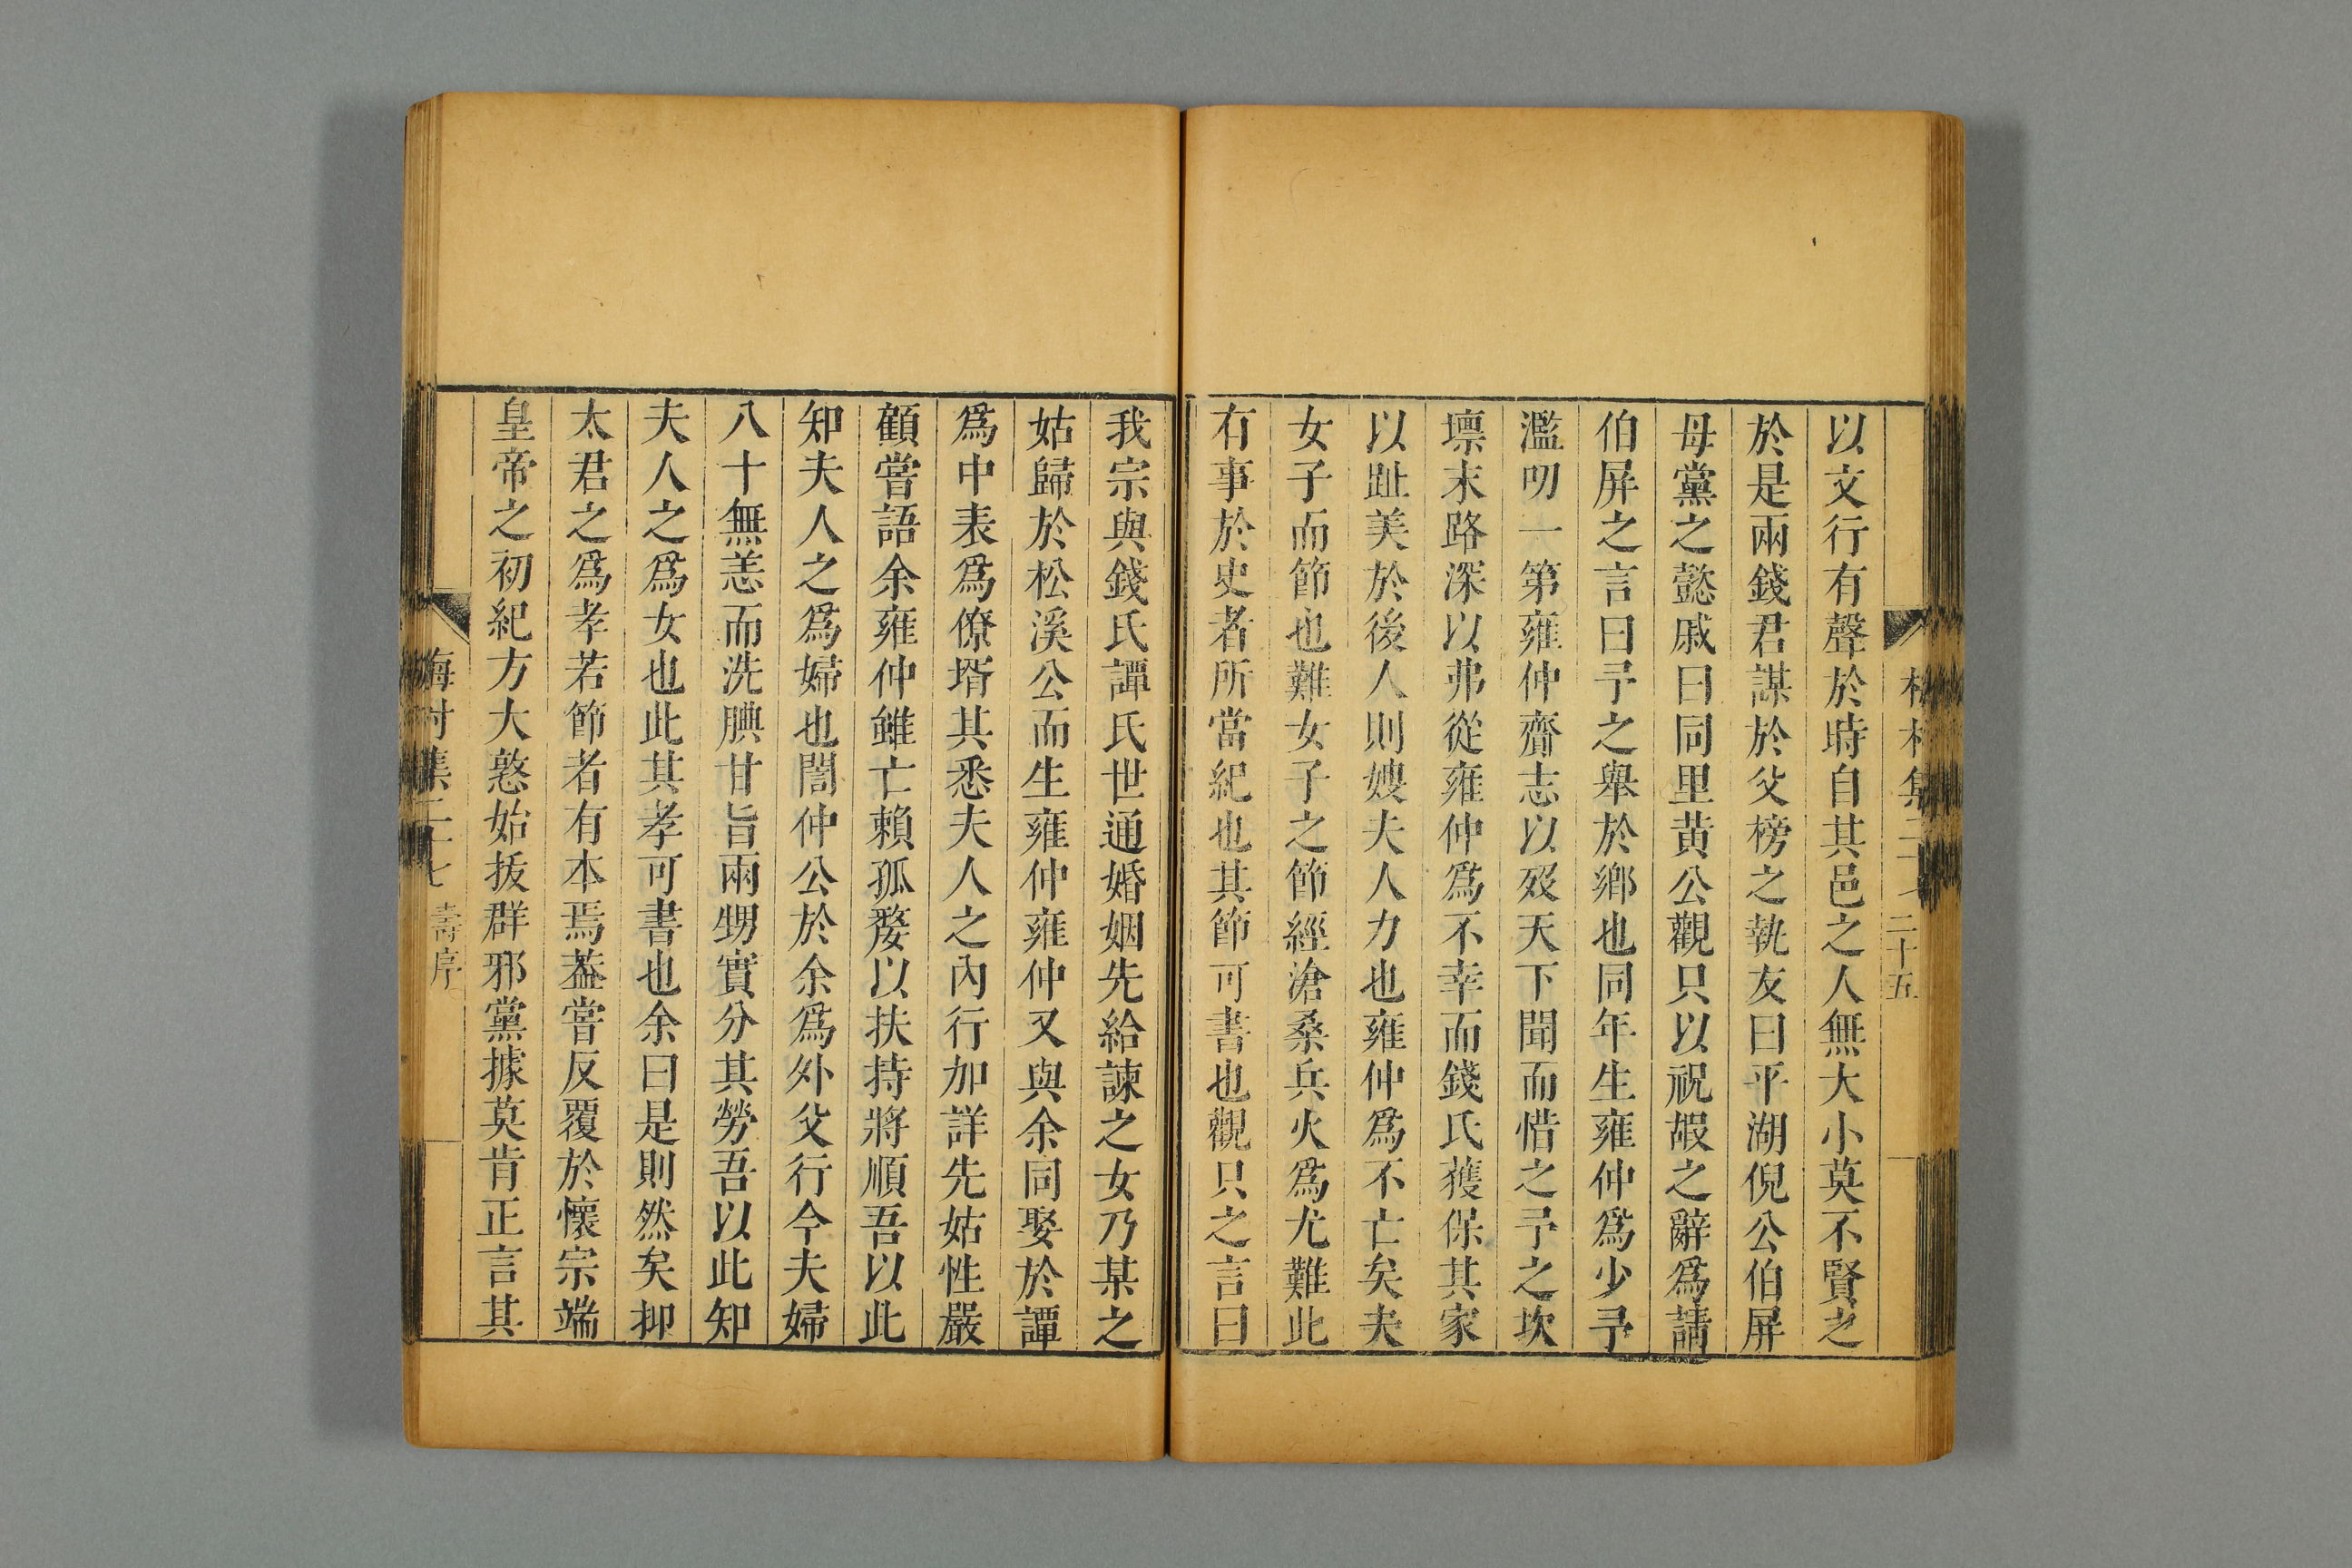 以文行有聲於時自其邑之人無大小莫不賢之
於是兩錢君謀於父榜之執友曰平湖倪公伯屏
母黨之懿戚曰同里黄公觀只以祝嘏之辭爲請
伯屏之言曰予之舉於鄉也同年生雍仲爲少予
濫叨一第雍仲齎志以歿天下聞而惜之予之坎
壈末路深以弗從雍仲爲不幸而錢氏獲保其家
以趾美於後人則嫂夫人力也雍仲爲不亡矣夫
女子而節也難女子之節經滄桑兵火爲尤難此
有事於史者所當紀也其節可書也觀只之言曰
二十五
我宗與錢氏譚氏世通婚姻先給諫之女乃某之
姑歸於松溪公而生雍仲雍仲又與余同娶於譚
爲中表爲僚壻其悉夫人之內行加詳先姑性嚴
顧嘗語余雍仲雖亡賴孤嫠以扶持將順吾以此
知夫人之爲婦也誾仲公於余爲外父行今夫婦
八十無恙而洗腆甘旨兩甥實分其勞吾以此知
夫人之爲女也此其孝可書也余曰是則然矣抑
太君之爲孝若節者有本焉葢嘗反覆於懷宗端
皇帝之初紀方大憝始拔群邪黨據莫肯正言其
梅村集二十七 壽序